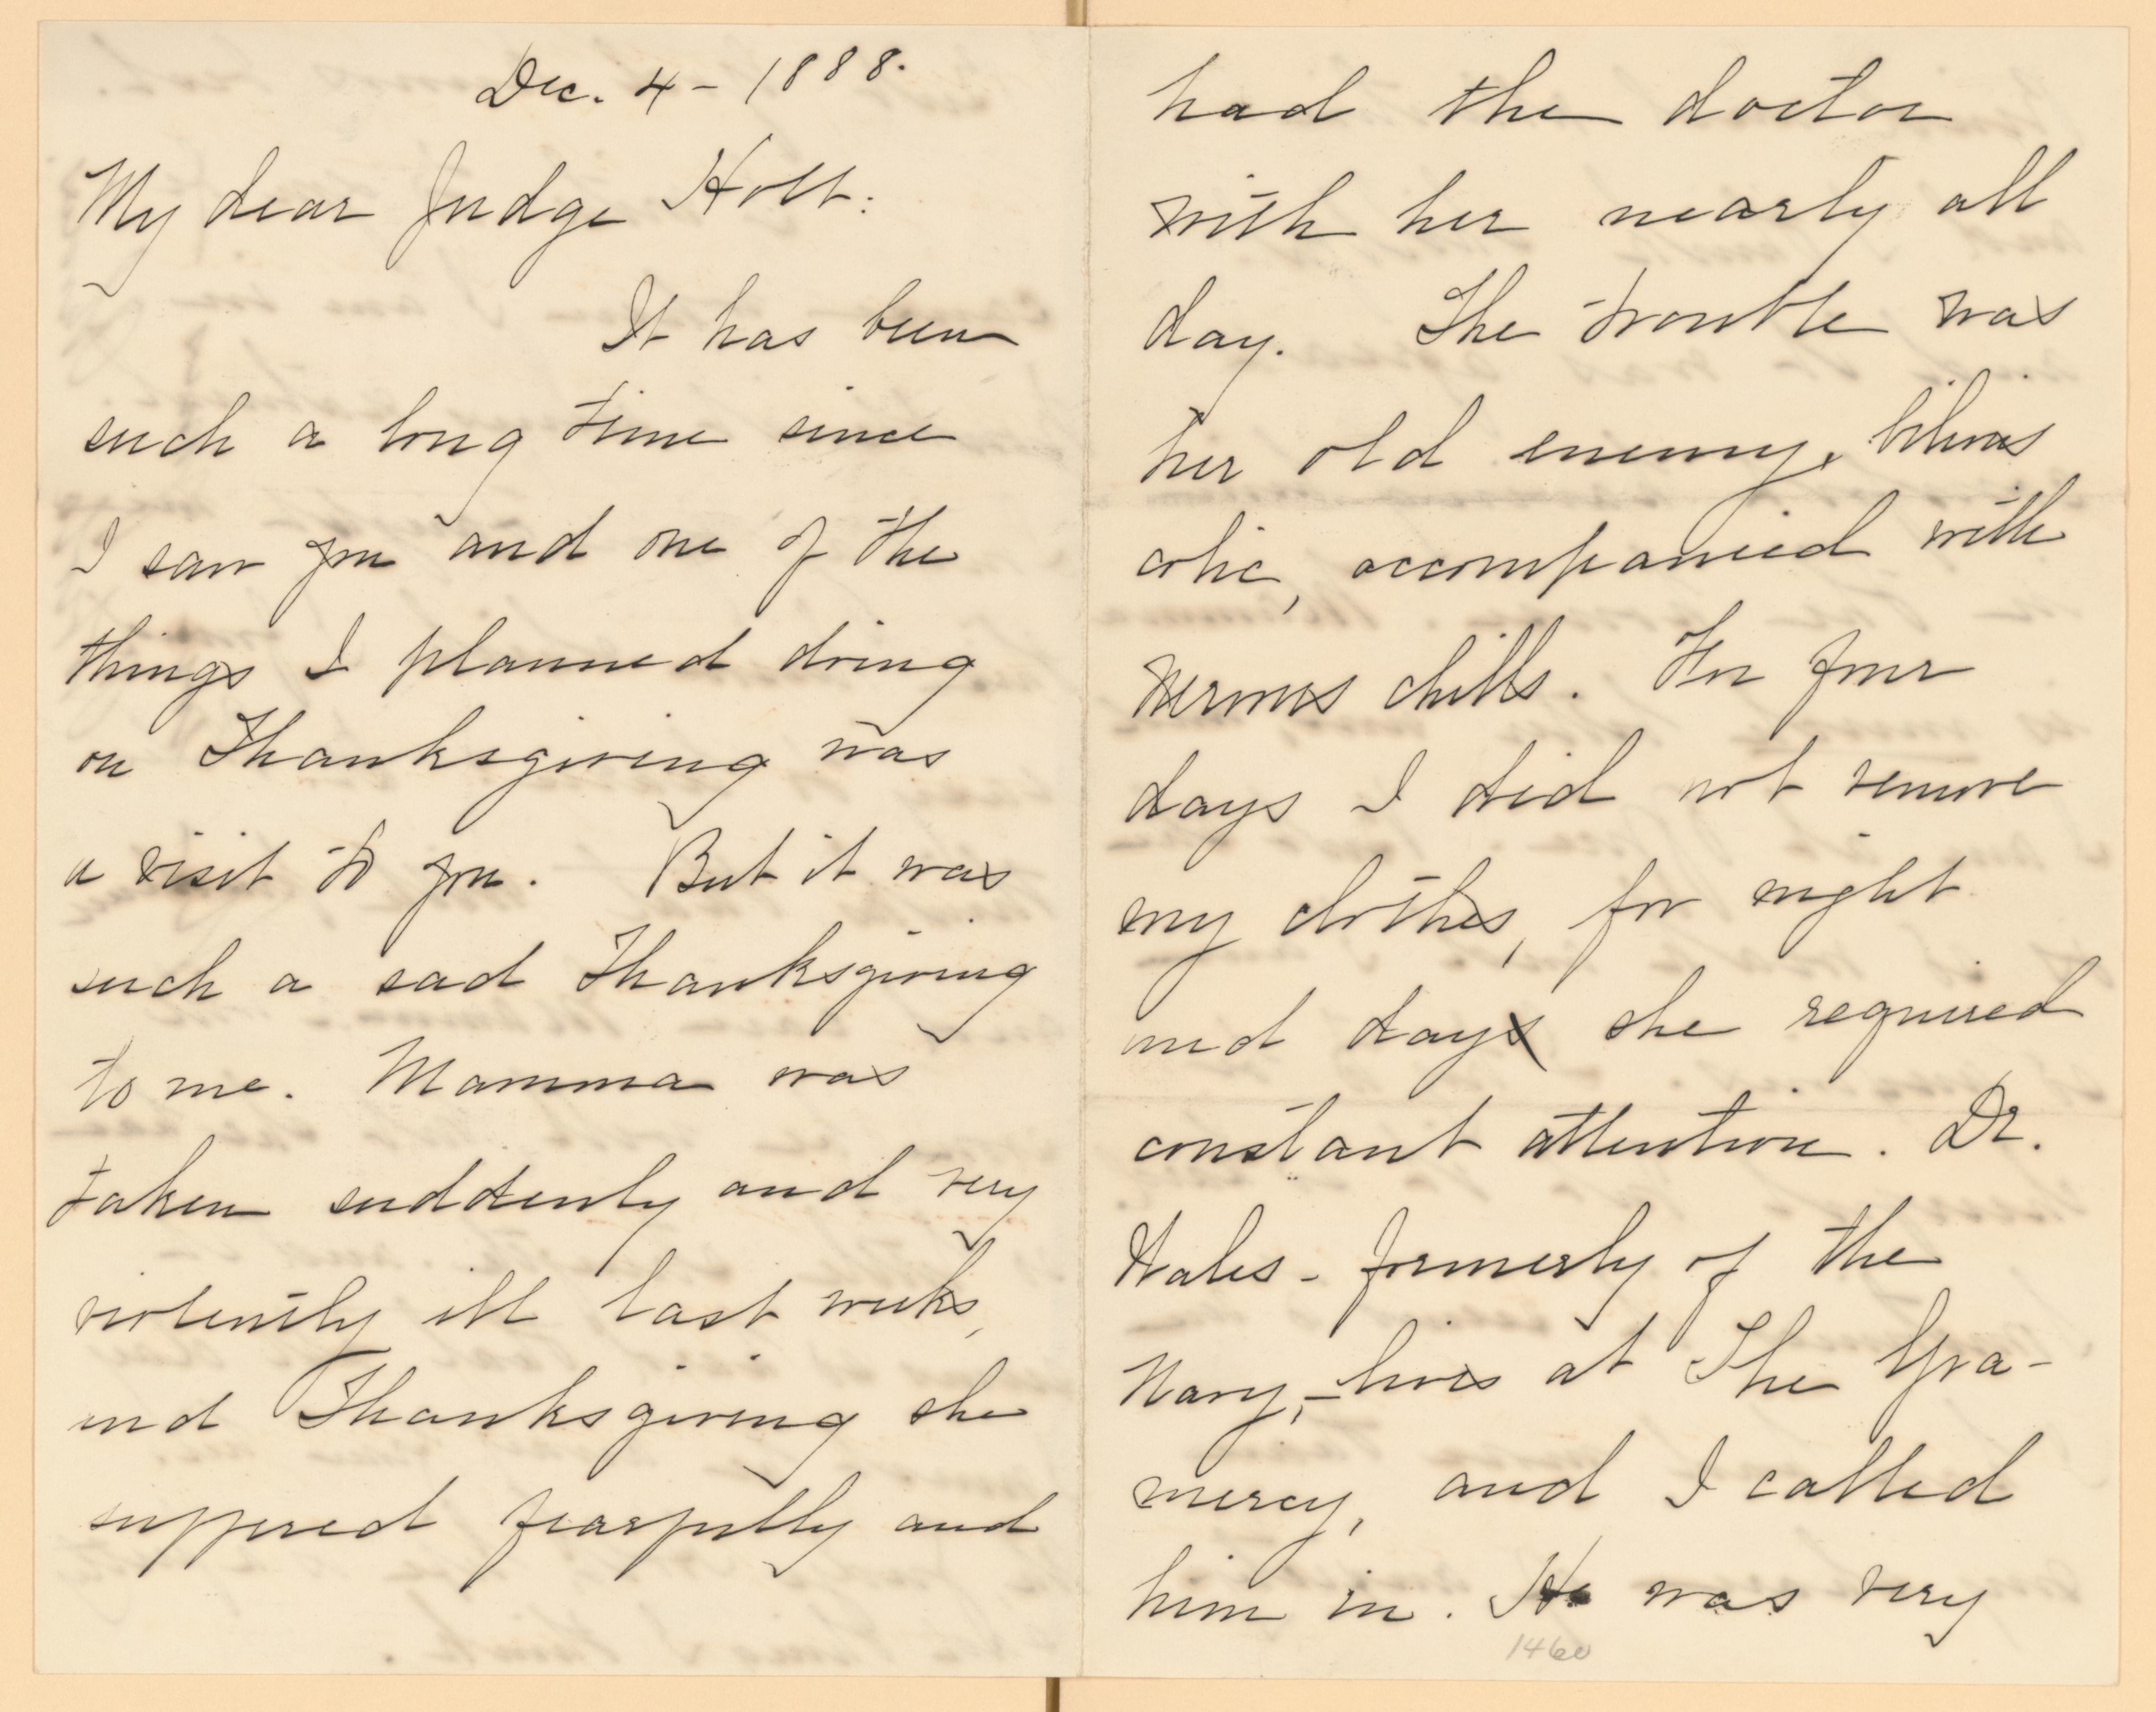 Dec. 4 - 1888.
My dear Judge Holt:
It has been
such a long time since
I saw you and one of the
things I planned doing
on Thanksgiving was
a visit to you. But it was
such a sad Thanksgiving
to me. Mamma was
taken suddenly and very
violently ill last week,
and Thanksgiving she
suffered fearfully and
had the doctor
with her nearly all
day. The trouble was
her old enemy, bilious
colic, accompanied with
nervous chills. For four
days I did not remove
my clothes, for night
and day she required
constant attention. Dr.
Hales - formerly of the
Navy, - lives at The Gra-
mercy, and I called
him in. He was very
1460